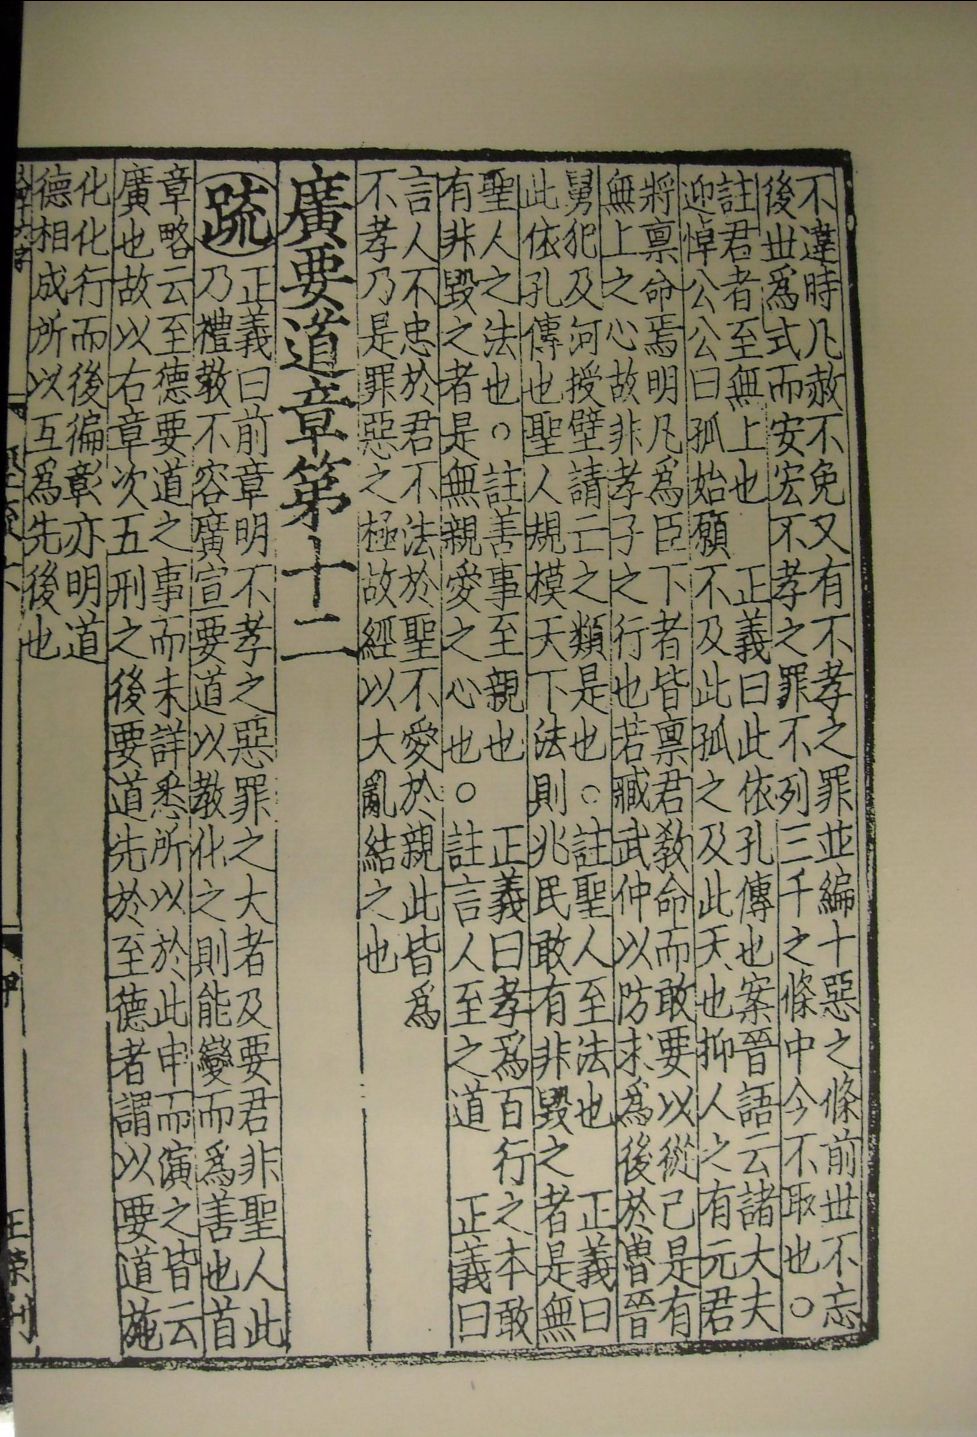 不違時凡赦不免又有不孝之罪並編十惡之條前世不忘
後世爲式而安宏不孝之罪不列三千之條中今不取也○
註君者至無上也　正義曰此依孔傳也案晉語云諸大夫
迎悼公公曰孤始願不及此孤之及此天也抑人之有元君
將禀命焉明凡爲臣下者皆禀君敎命而敢要以從己是有
無上之心故非孝子之行也若臧武仲以防求爲後於魯晉
舅犯及河授壁請亡之類是也○註聖人至法也　正義曰
此依孔傳也聖人規模天下法則兆民敢有非毀之者是無
聖人之法也○註善事至親也　正義曰孝爲百行之本敢
有非毀之者是無親愛之心也○註言人至之道　正義曰
言人不忠於君不法於聖不愛於親此皆爲
不孝乃是罪惡之極故經以大亂結之也
廣要道章第十二
疏
正義曰前章明不孝之惡罪之大者及要君非聖人此
乃禮教不容廣宣要道以教化之則能變而爲善也首
章略云至德要道之事而未詳悉所以於此申而演之皆云
廣也故以右章次五刑之後要道先於至德者謂以要道施
化化行而後徧彰亦明道
德相成所以互爲先後也